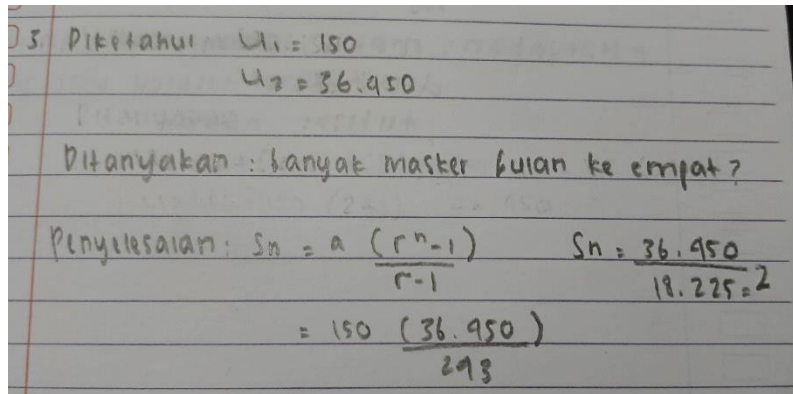 3. Diketahui U1 = 150
U2 = 36.950
Ditanyakan : banyak masker bulan ke empat?
Penyelesaian : Sn = a (r^n - 1) / r - 1 Sn = 36.950 / 18.225 = 2
= 150 (36.950) / 293